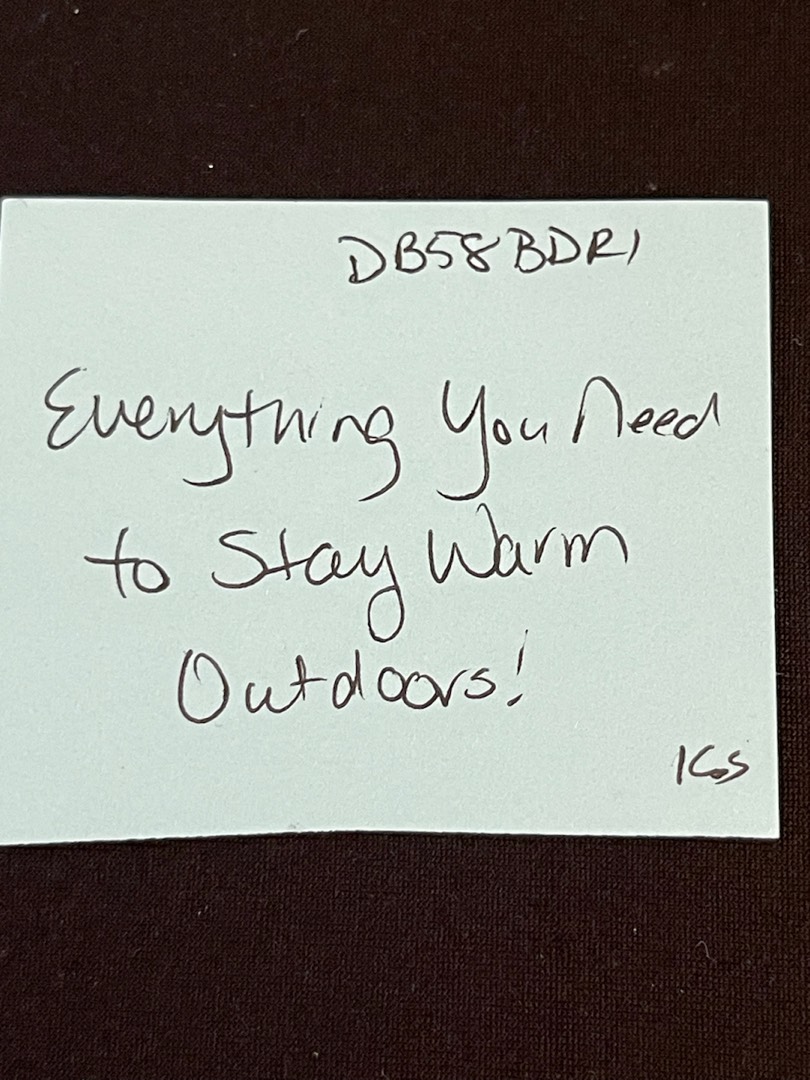 DB58BDR1
Everything You Need
to Stay Warm
Outdoors!